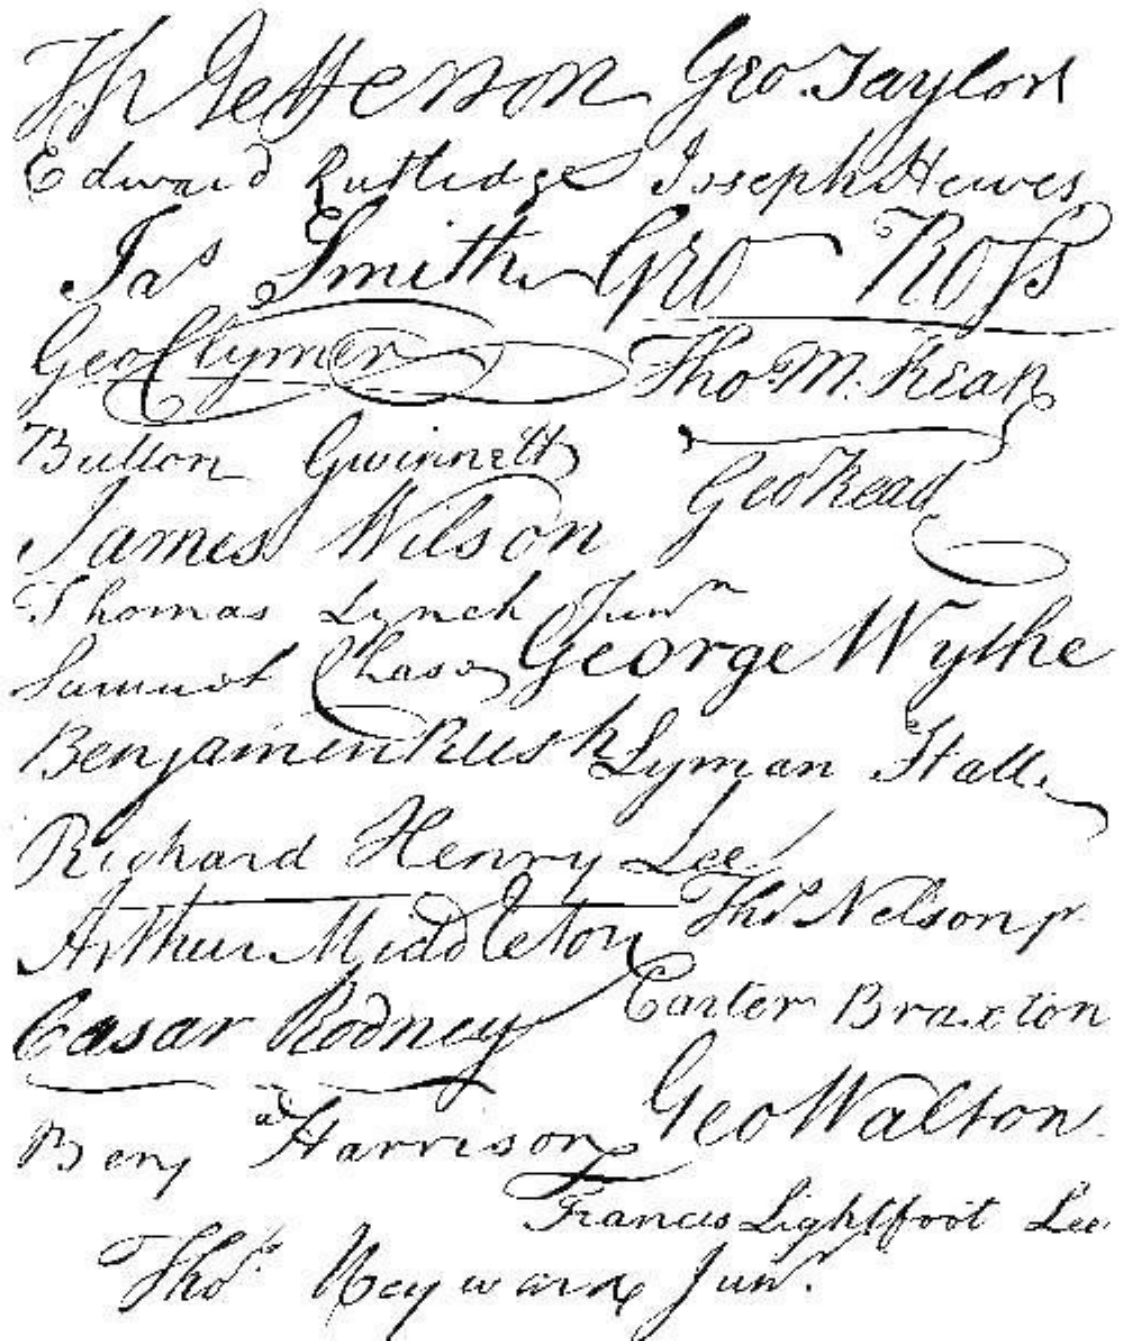 Th Jefferson Geo. Taylor
Edward Rutledge Joseph Hewes
Jas Smith Geo Ross
Geo Clymer Tho M. Kean
Button Gwinnett Geo Read
James Wilson
Thomas Lynch Junr
Samuel Chase George Wythe
Benjamin Rush Lyman Hall
Richard Henry Lee
Arthur Middleton Thos Nelson jr
Cæsar Rodney Carter Braxton
Benj Harrison Geo Walton
Francis Lightfoot Lee
Thos Heyward Junr.